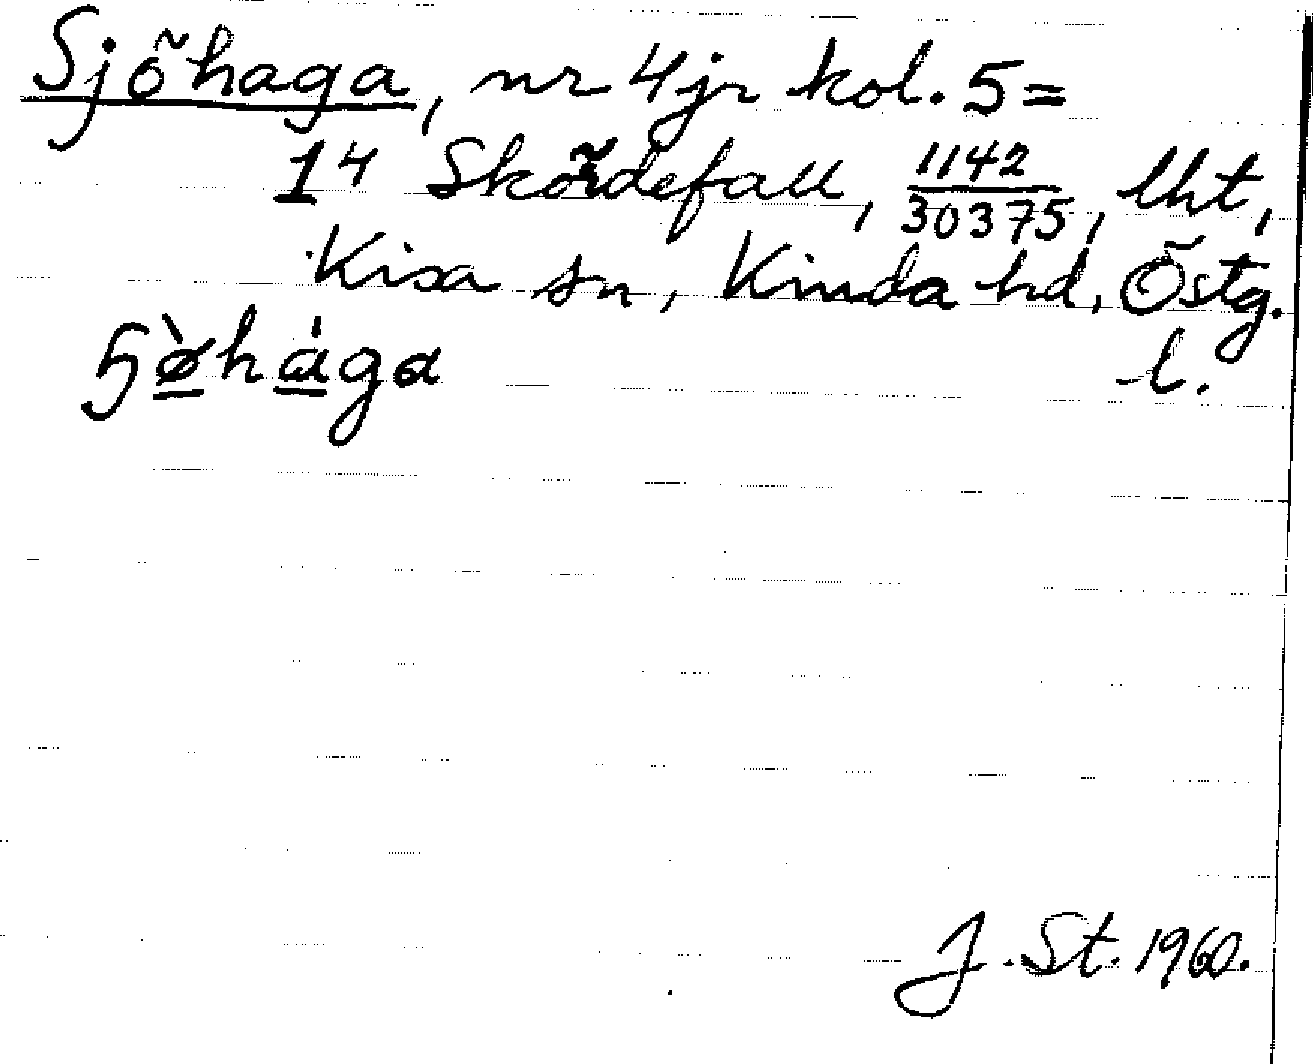 Sjöhaga, nr 4jr kol. 5=
14 Skördefall, 1142/30375, lht,
Kisa sn, Kinda hd, Östg.
l.
ɧø̀hàga
J. St. 1960.